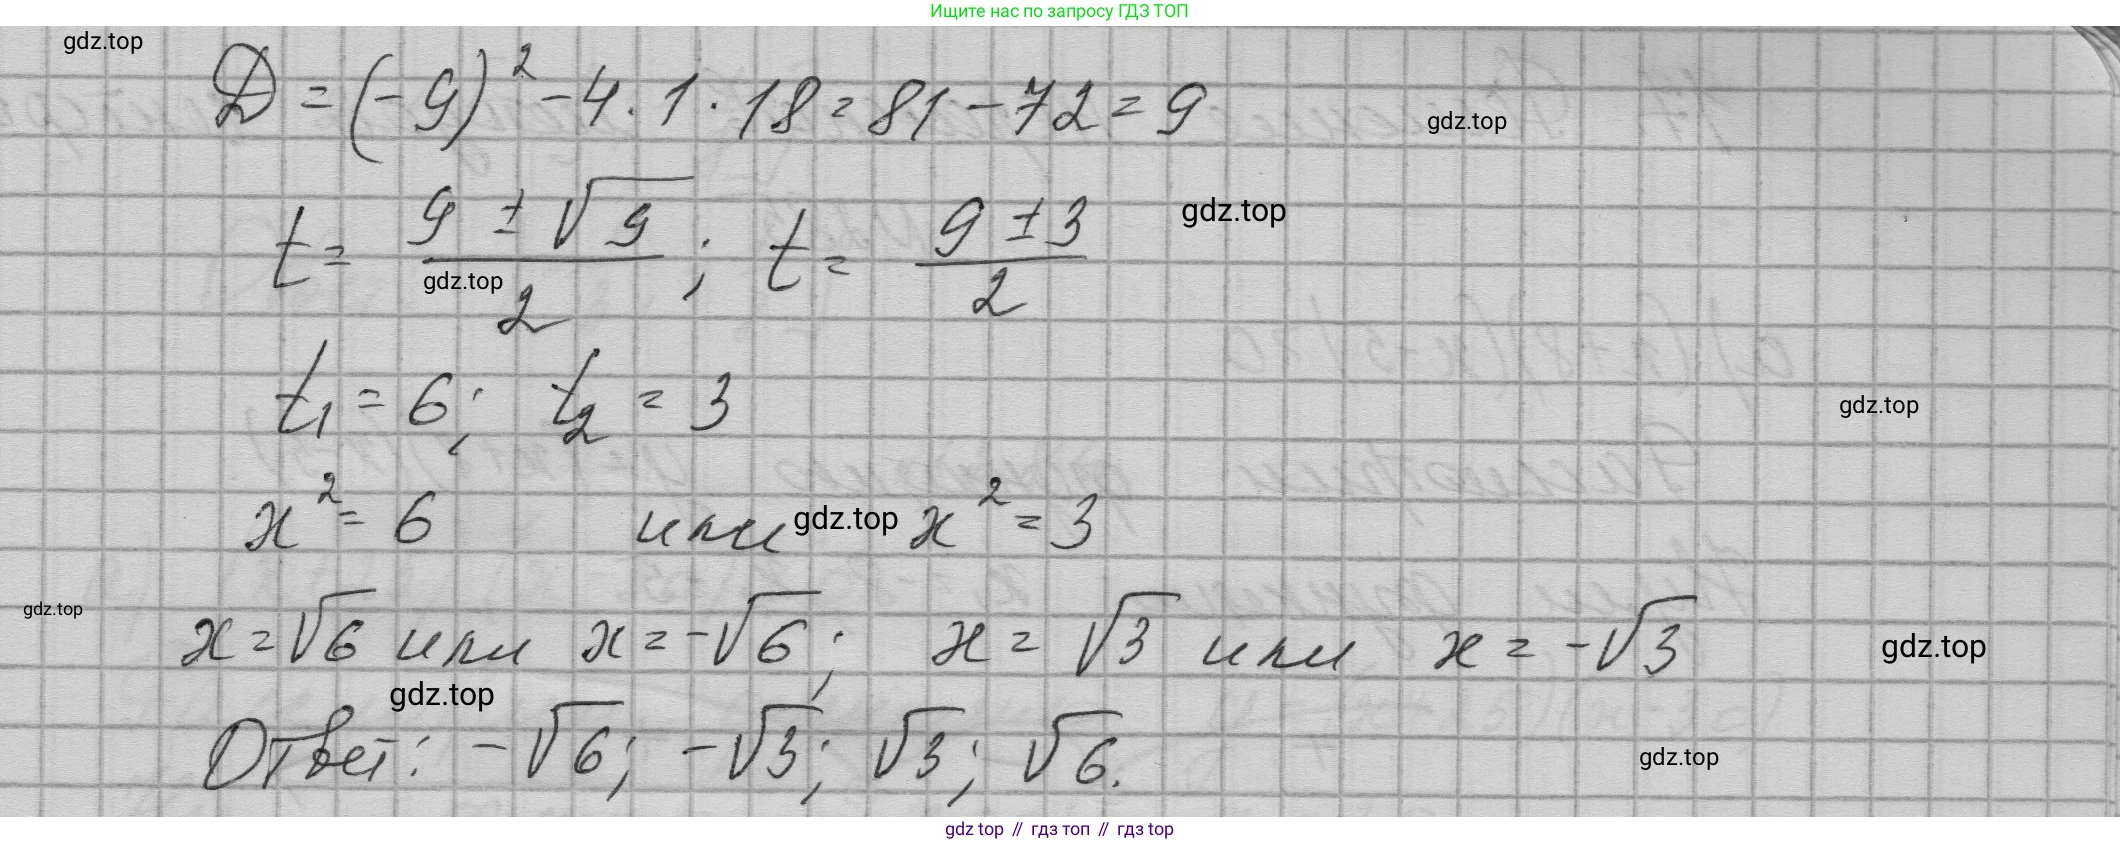 Ищите нас по запросу ГДЗ ТОП
gdz.top
Д = (-9)² - 4 · 1 · 18 = 81 - 72 = 9
gdz.top
t = (9 ± √9)/2; t = (9 ± 3)/2
gdz.top
gdz.top
t₁ = 6; t₂ = 3
gdz.top
x² = 6 или x² = 3
gdz.top
gdz.top
x = √6 или x = -√6; x = √3 или x = -√3
gdz.top
gdz.top
Ответ: -√6; -√3; √3; √6.
gdz.top
gdz top // гдз топ // gdz top